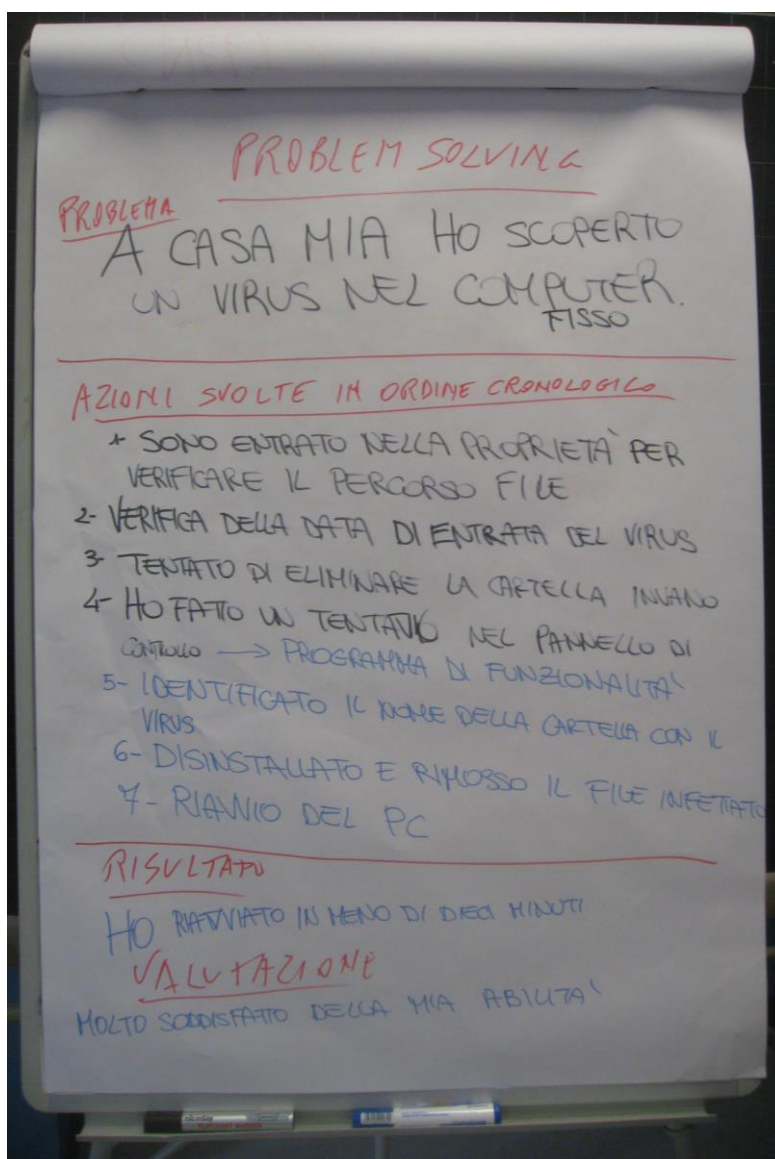 PROBLEM SOLVING
PROBLEMA
A CASA MIA HO SCOPERTO
UN VIRUS NEL COMPUTER.
FISSO
AZIONI SVOLTE IN ORDINE CRONOLOGICO
SONO ENTRATO NELLA PROPRIETÀ PER
VERIFICARE IL PERCORSO FILE
2- VERIFICA DELLA DATA DI ENTRATA DEL VIRUS
3- TENTATO DI ELIMINARE LA CARTELLA INVANO
4- HO FATTO UN TENTATIVO NEL PANNELLO DI
CONTROLLO → PROGRAMMA DI FUNZIONALITÀ
5- IDENTIFICATO IL NOME DELLA CARTELLA CON IL
VIRUS
6- DISINSTALLATO E RIMOSSO IL FILE INFETTATO
7- RIAVVIO DEL PC
RISULTATO
HO RIAVVIATO IN MENO DI DIECI MINUTI
VALUTAZIONE
MOLTO SODDISFATTO DELLA MIA ABILITÀ